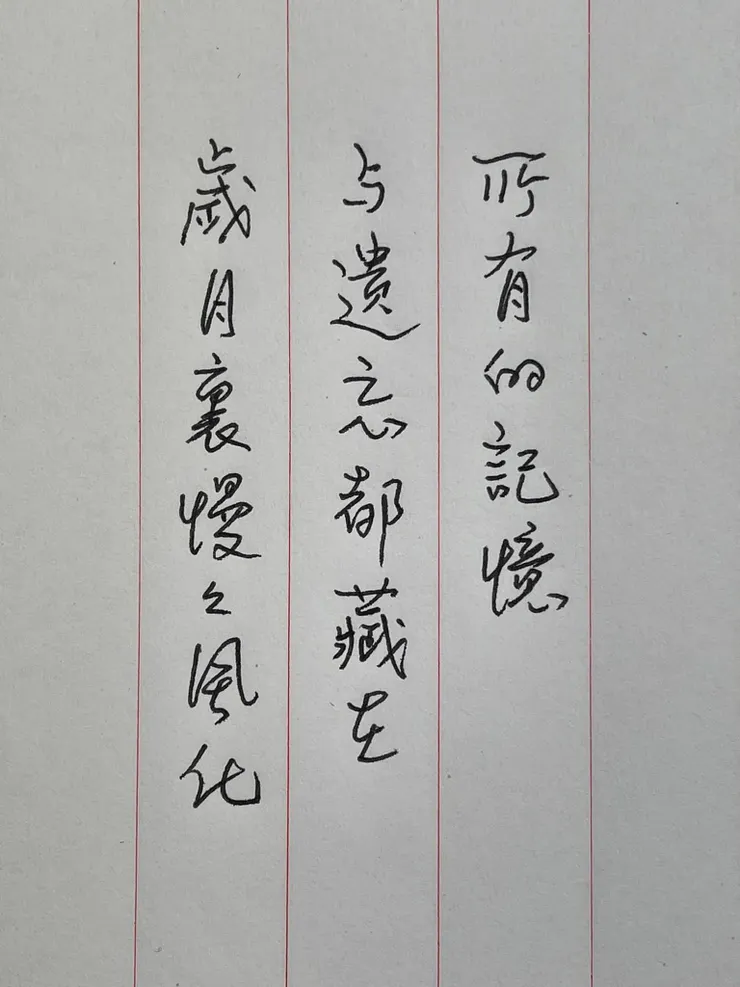 所有的記憶
与遺忘都藏在
歲月裏慢々風化